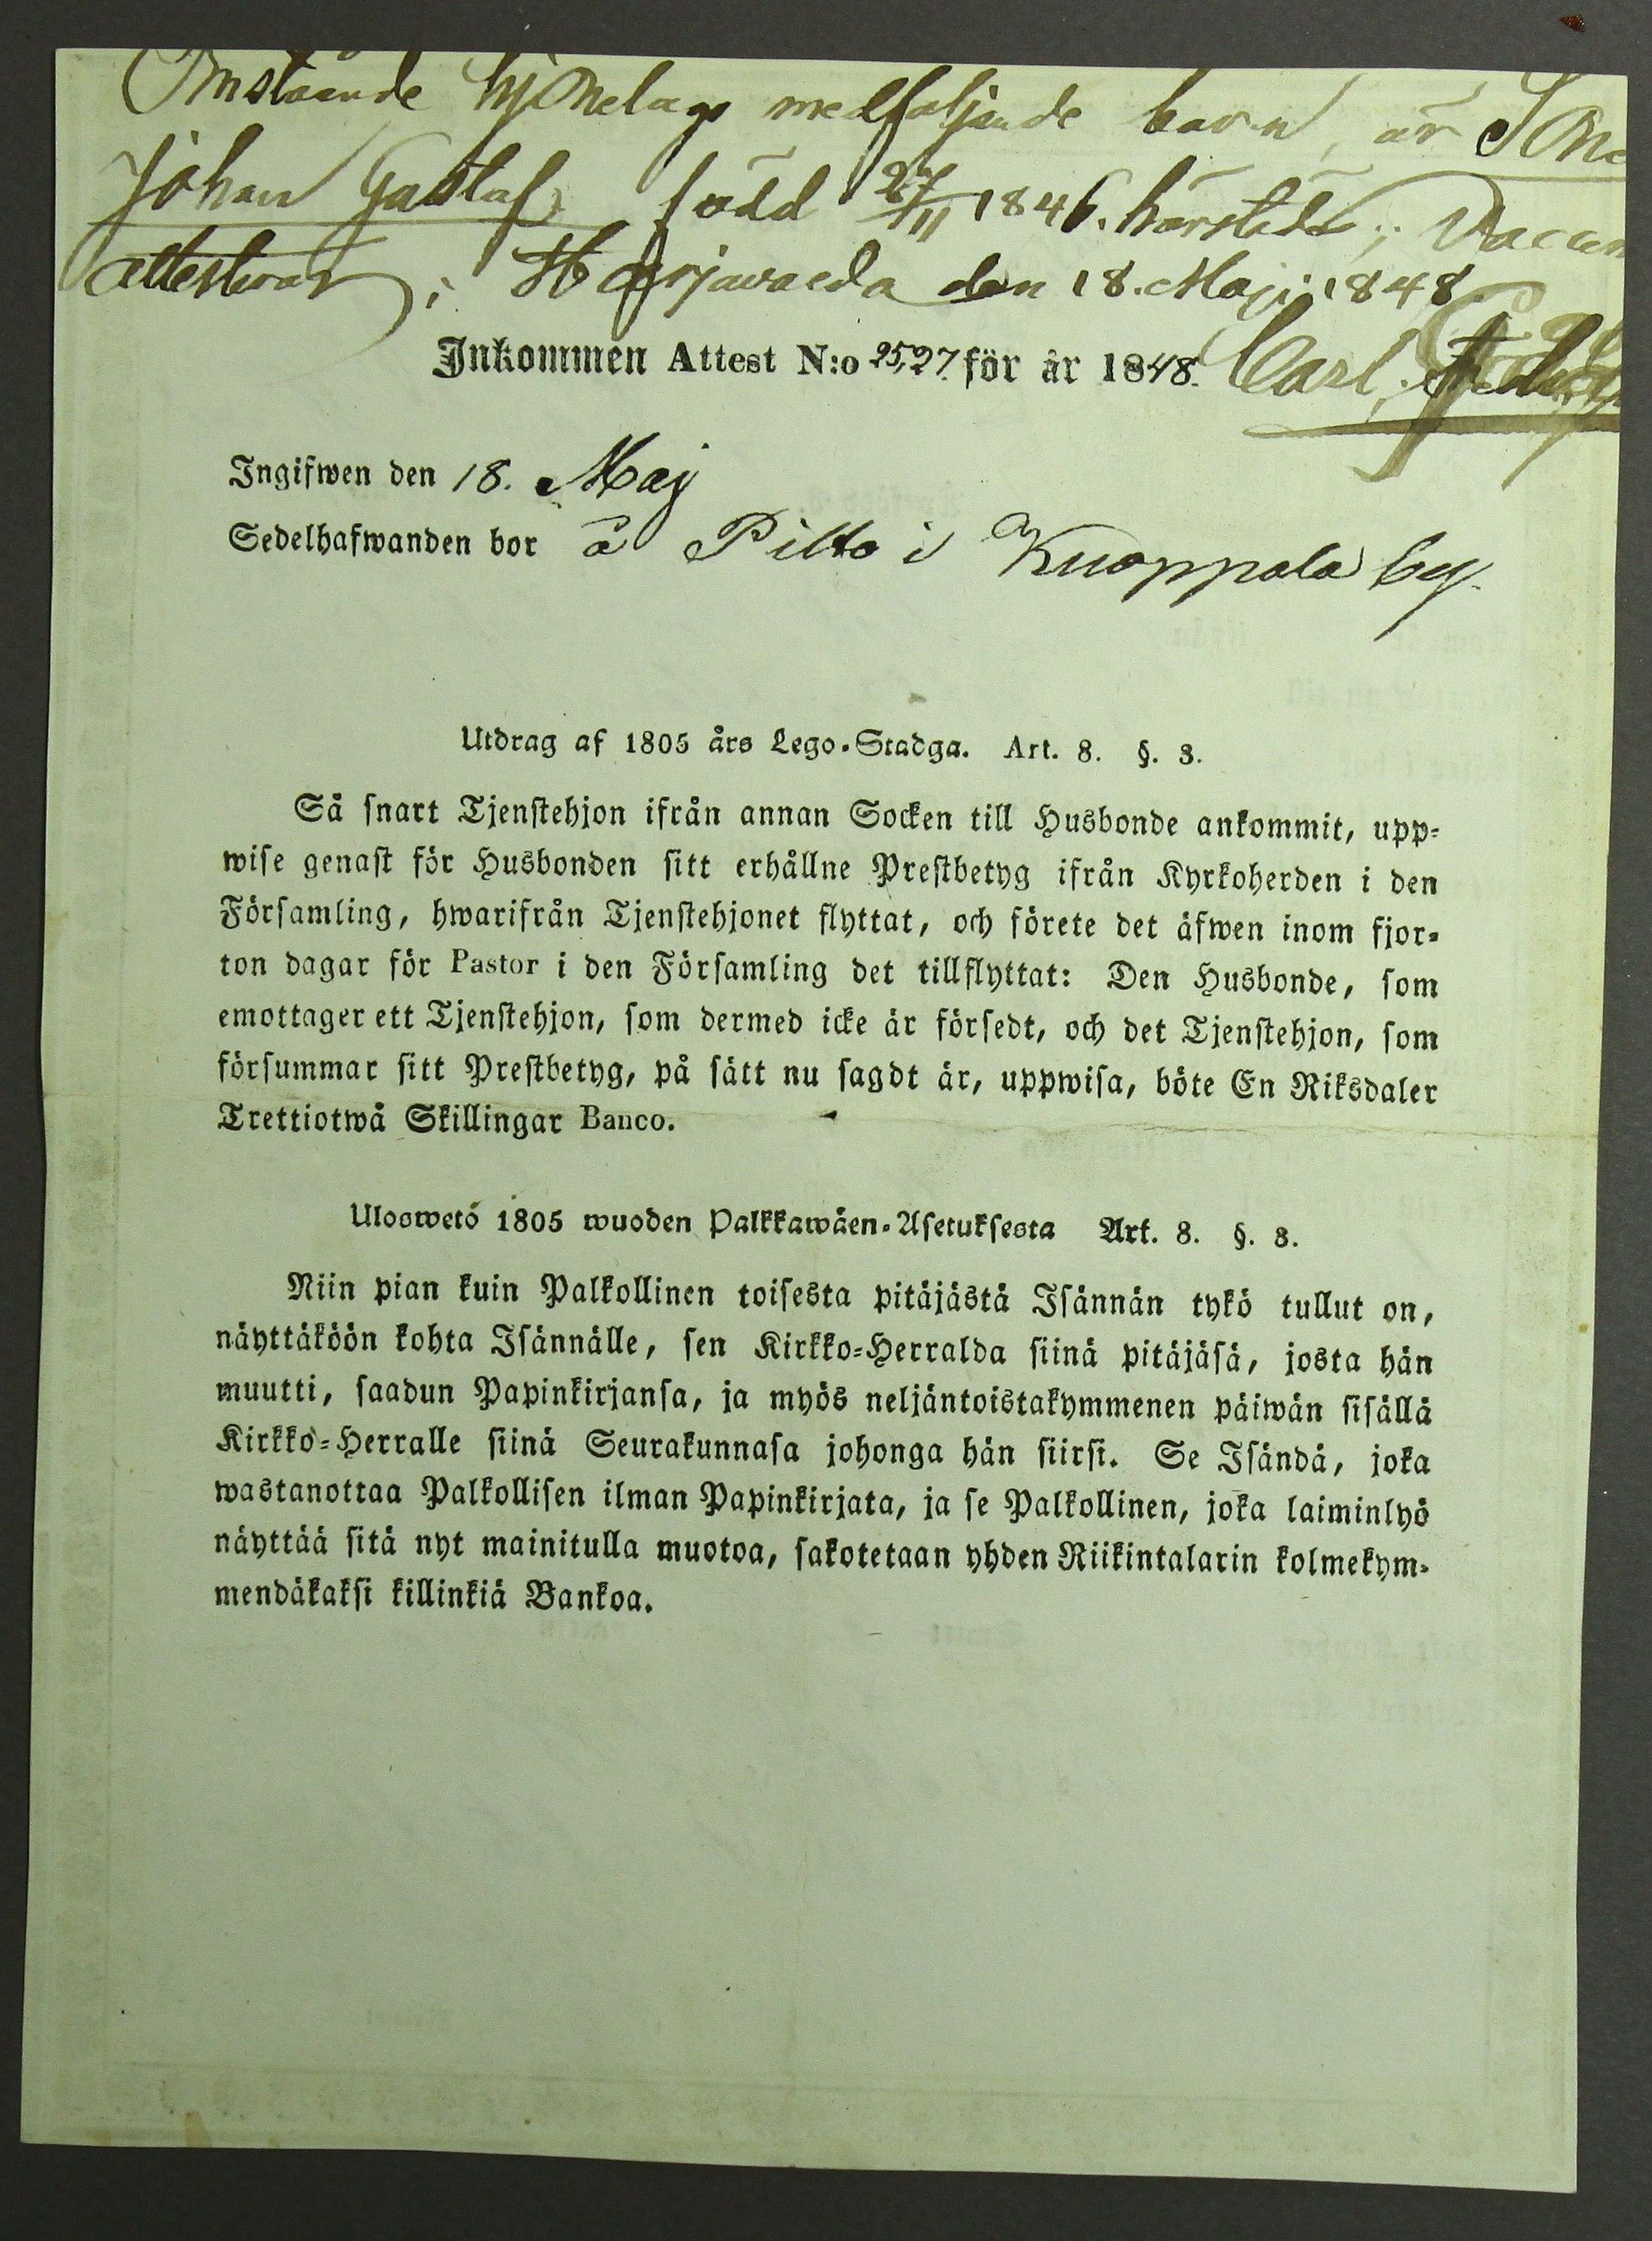 Omstående hjonelags medföljande barn, är Sone
Johan Gustaf född 27/11 1846. härstädes; Vaccin
attesteras; Harjavalda den 18. Maji 1848
Inkommen Attest N:o 25,27 för år 1848. Carl
Ingifwen den 18. Maj
Sedelhafwanden bor å Pitto i Kuoppala by.
Utdrag af 1805 års Lego-Stadga. Art. 8. §. 3.
Så snart Tjenstehjon ifrån annan Socken till Husbonde ankommit, upp-
wise genast för Husbonden sitt erhållne Prestbetyg ifrån Kyrkoherden i den
Församling, hwarifrån Tjenstehjonet flyttat, och förete det äfwen inom fjor-
ton dagar för Pastor i den Församling det tillflyttat: Den Husbonde, som
emottager ett Tjenstehjon, som dermed icke är försedt, och det Tjenstehjon, som
försummar sitt Prestbetyg, på sätt nu sagdt är, uppwisa, böte En Riksdaler
Trettiotwå Skillingar Banco.
Uloswetö 1805 wuoden Palkkawäen-Asetuksesta Art. 8. §. 3.
Niin pian kuin Palkollinen toisesta pitäjästä Isännän tykö tullut on,
näyttäköön kohta Isännälle, sen Kirkko-Herralda siinä pitäjäsä, josta hän
muutti, saadun Papinkirjansa, ja myös neljäntoistakymmenen päiwän sisällä
Kirkko-Herralle siinä Seurakunnasa johonga hän siirsi. Se Isändä, joka
wastanottaa Palkollisen ilman Papinkirjata, ja se Palkollinen, joka laiminlyö
näyttää sitä nyt mainitulla muotoa, sakotetaan yhden Riikintalarin kolmekym-
mendäkaksi killinkiä Bankoa.